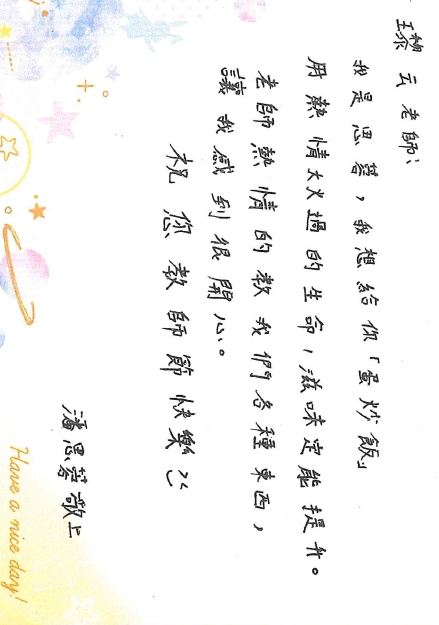 璟黎云老師：
我是思蓉，我想給你「蛋炒飯」
用熱情炏過的生命，滋味定能提升。
老師熱情的教我們各種東西，
讓我感到很開心。
祝您教師節快樂
潘思蓉敬上
Have a nice day!